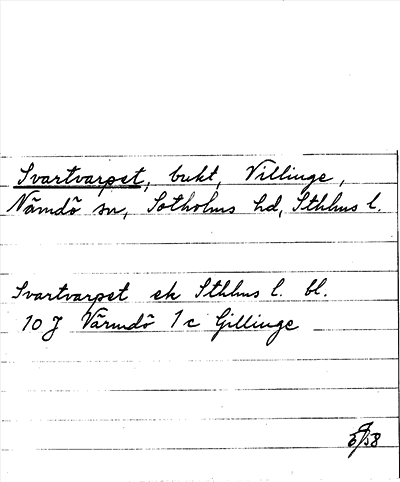 Svartvarpet, bukt, Villinge,
Nämdö sn, Sotholms hd, Sthlms l.
Svartvarpet ek Sthlms l. bl.
10 J Värmdö 1c Gillinge